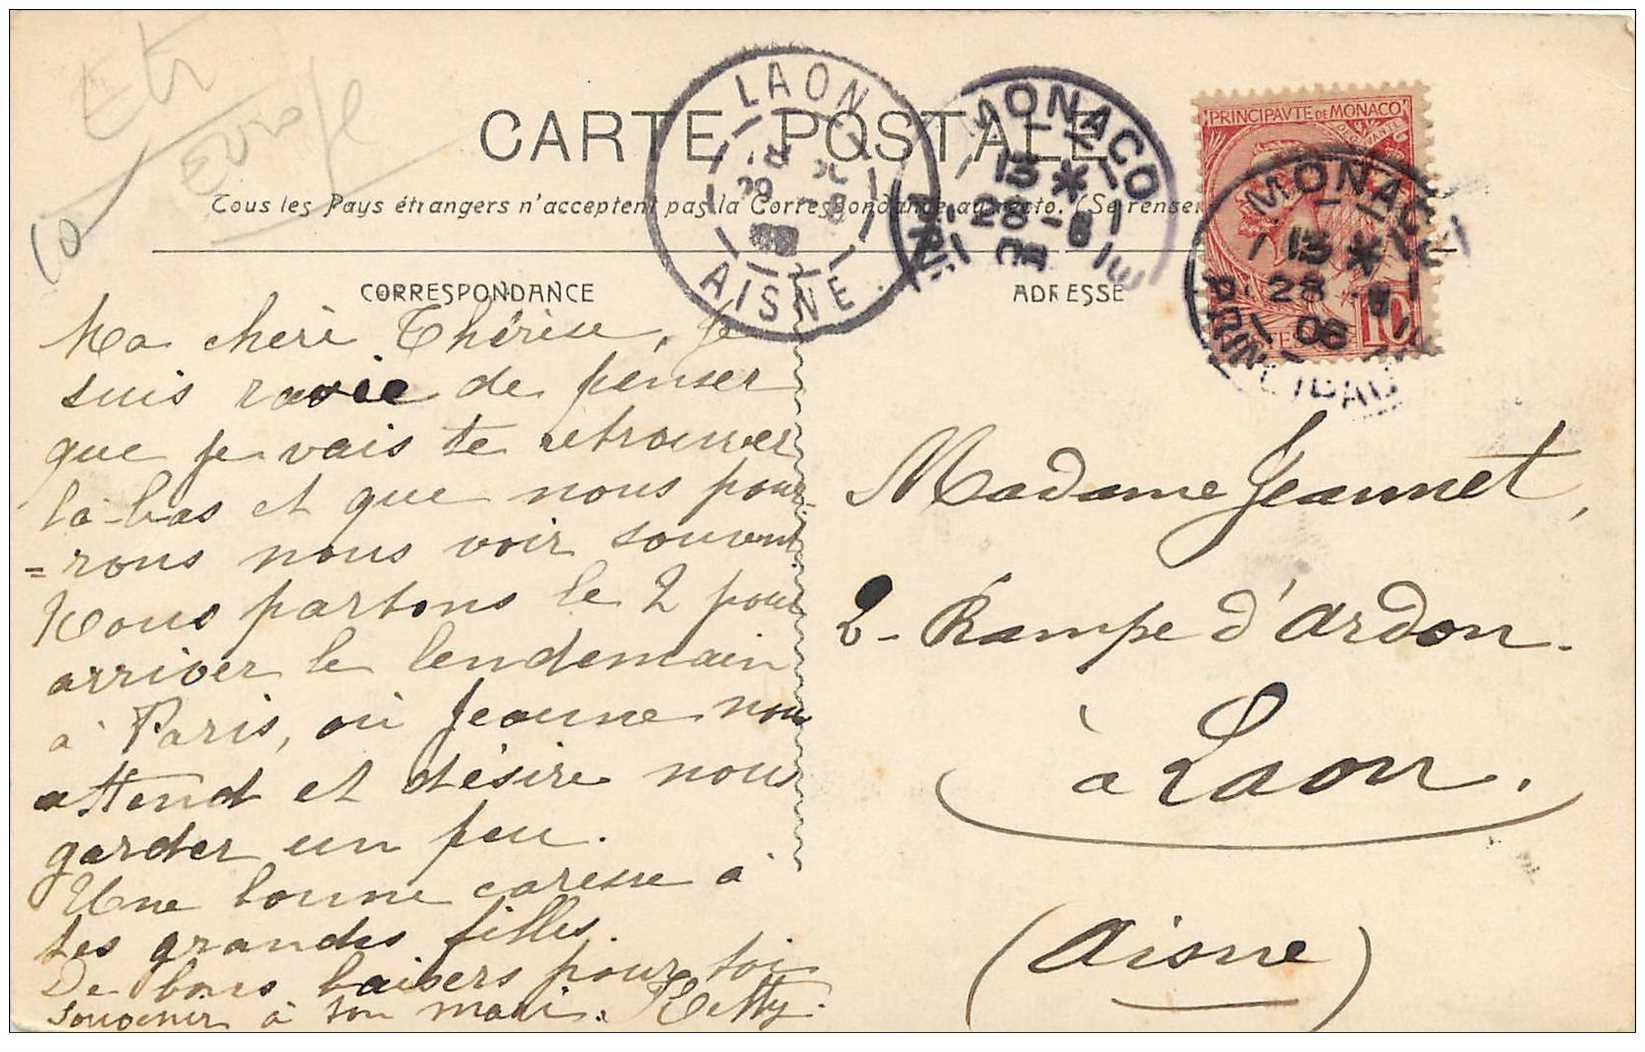 Etr
Europe
10
CARTE POSTALE
Tous les Pays étrangers n'acceptent pas la Correspondance au recto. (Se rensei
LAON
29 -8
AISNE
MONACO
13 *
28 -8
08
PRINCIPAUTE DE MONACO
MONACO
13 *
28 -8
08
10
CORRESPONDANCE
ADRESSE
Ma cheri Thérèse, Je
suis ravie de penser
que je vais te retrouver
là-bas et que nous pour-
=rons nous voir souvent
Nous partons le 2 pour
arriver le lendemain
à Paris, où Jeanne nous
attend et désire nous
garder un peu.
Une bonne caresse à
tes grandes filles.
De bons baisers pour toi
souvenir à ton mari. Ketty.
Madame Jeannet,
2 - Rampe d'Ardon.
à Laon.
(Aisne)